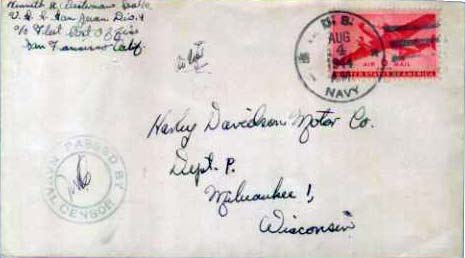 Kenneth
U.S.S. San Juan Div. 4
c/o Fleet Post Office
San Francisco Calif.
U.S.
AUG
4
1944
A.M.
NAVY
AIR MAIL
UNITED STATES OF AMERICA
Harley Davidson Motor Co.
Dept. P.
Milwaukee 1,
Wisconsin
PASSED BY
NAVAL CENSOR